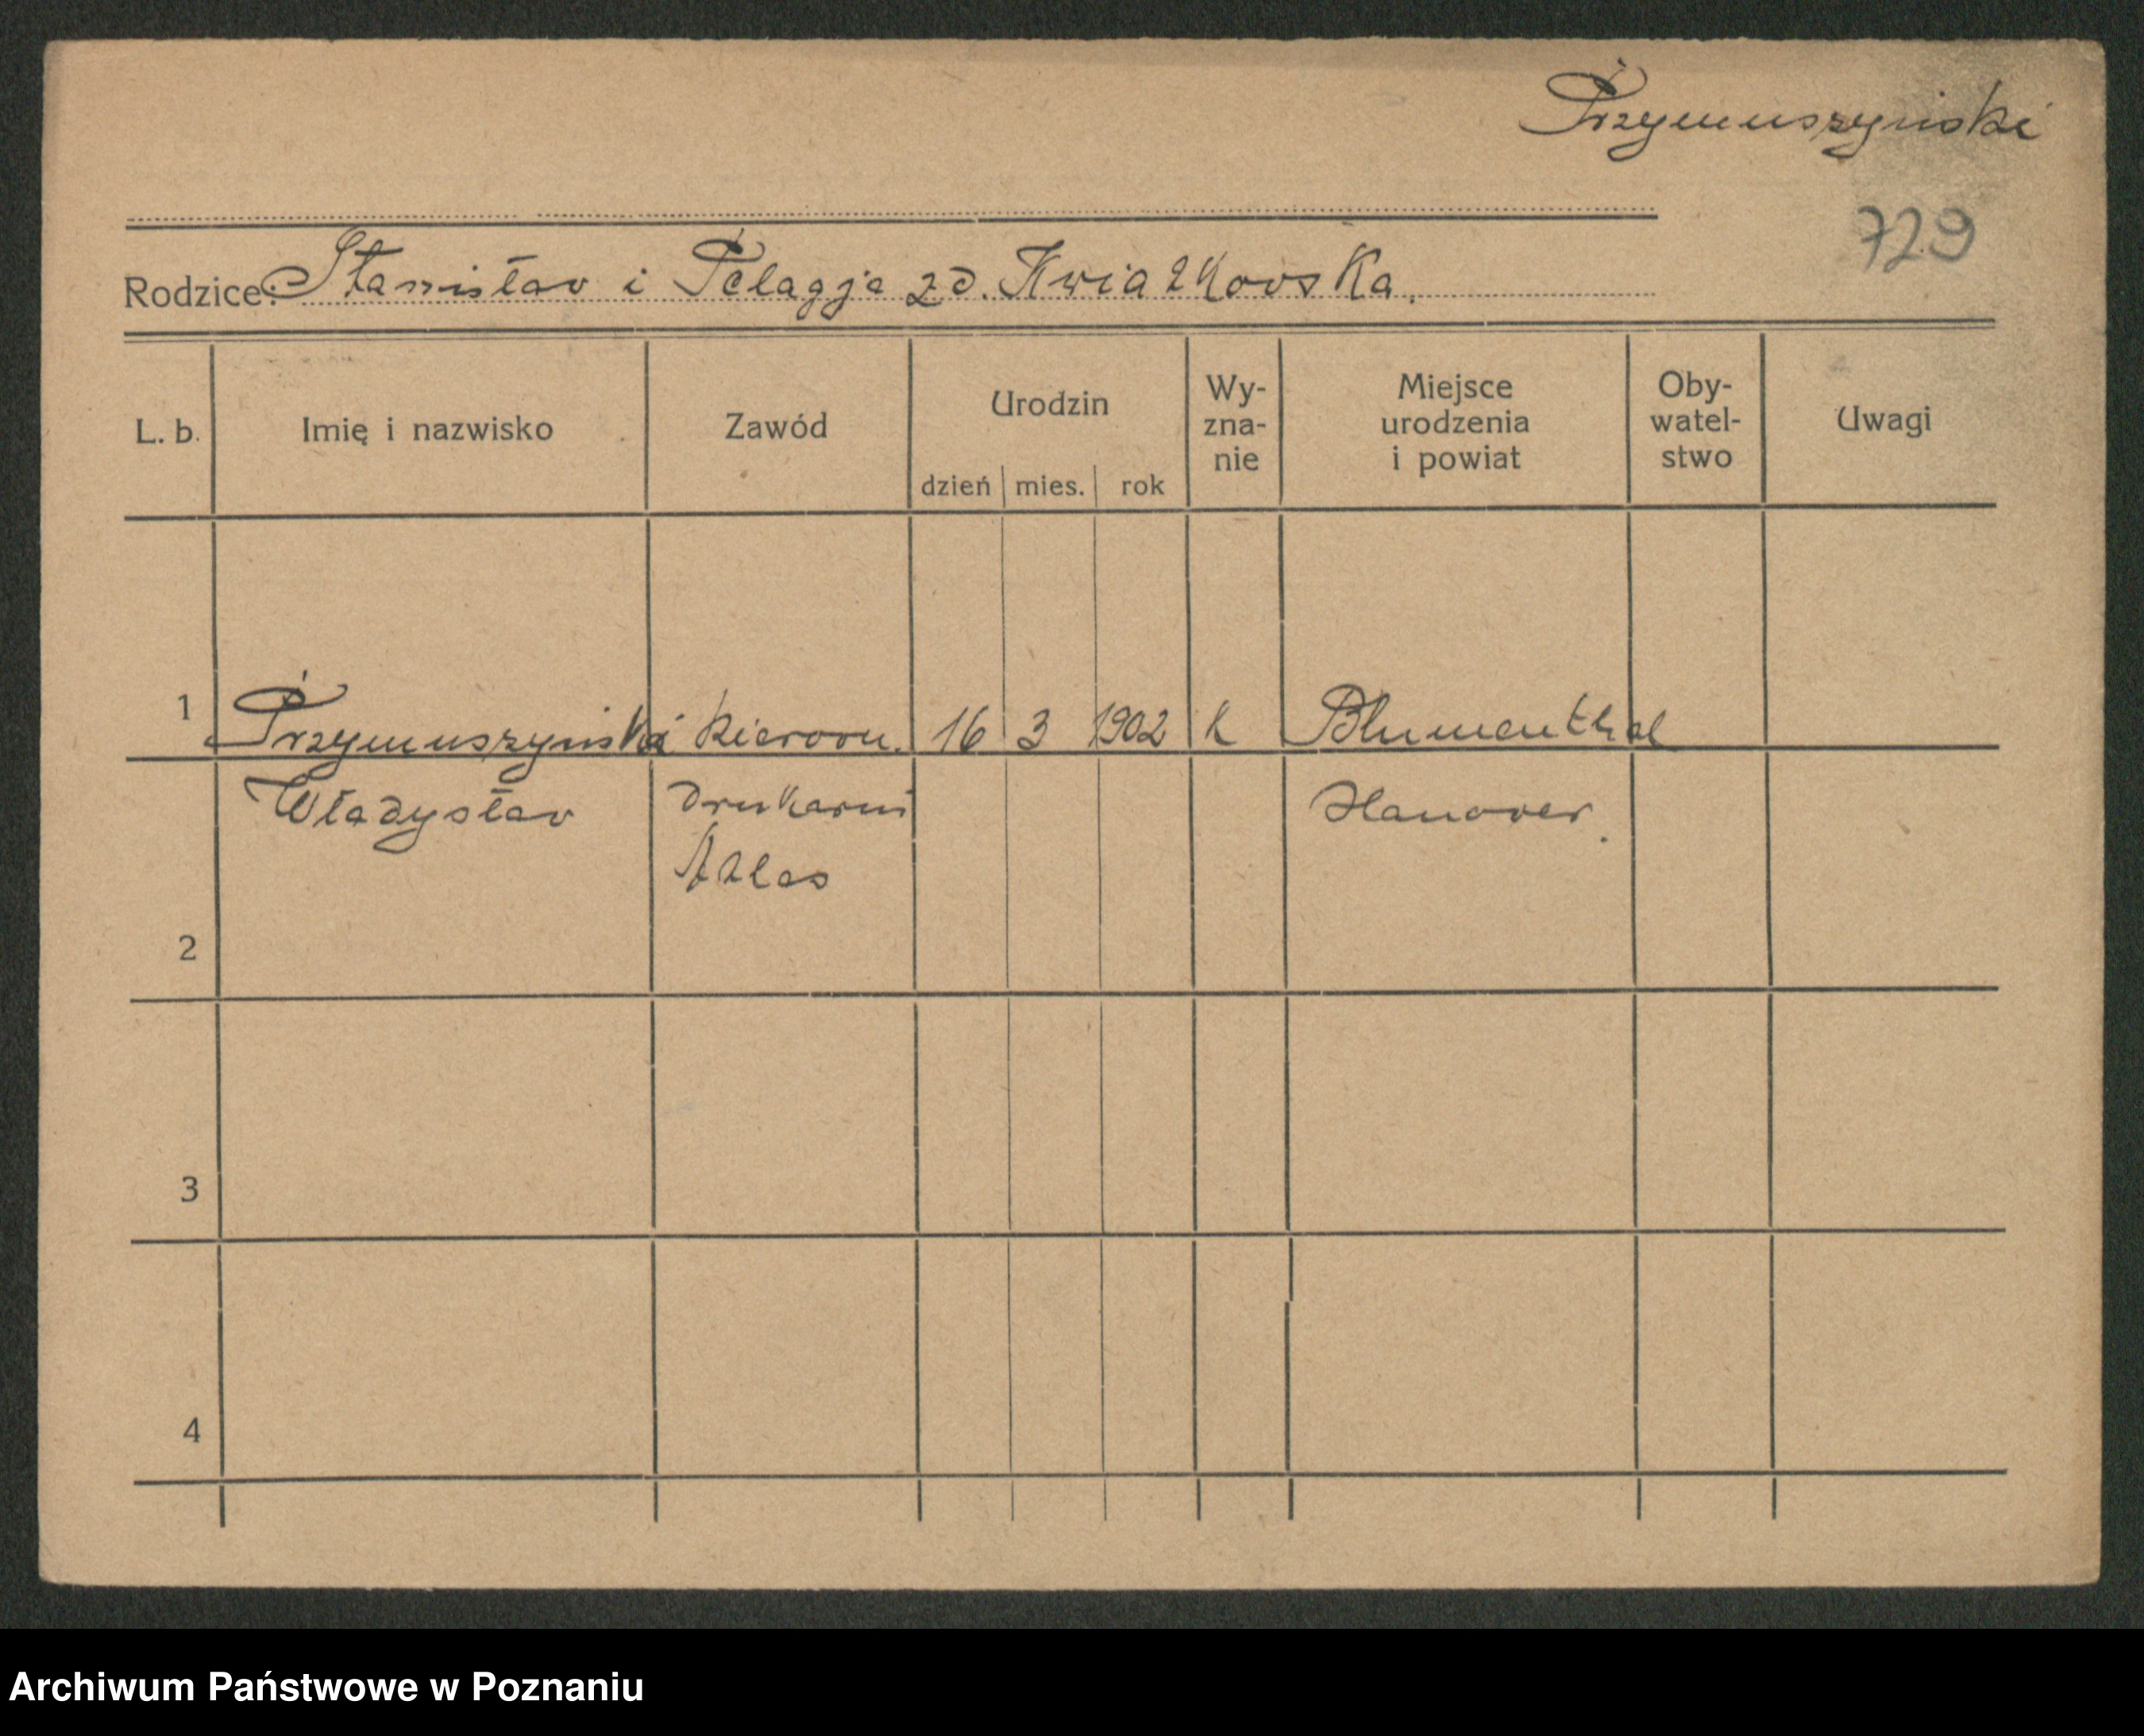 Przymuszyński
729
Rodzice: Stanisław i Pelagja zd. Kwiatkowska.
L. b. Imię i nazwisko Zawód Urodzin Wy- Miejsce Oby- Uwagi
zna- urodzenia watel-
nie i powiat stwo
dzień mies. rok
1 Przymuszyński kierown. 16 3 1902 k Blumenthal
Władysław Drukarni Hanover.
Atlas
2
3
4
Archiwum Państwowe w Poznaniu